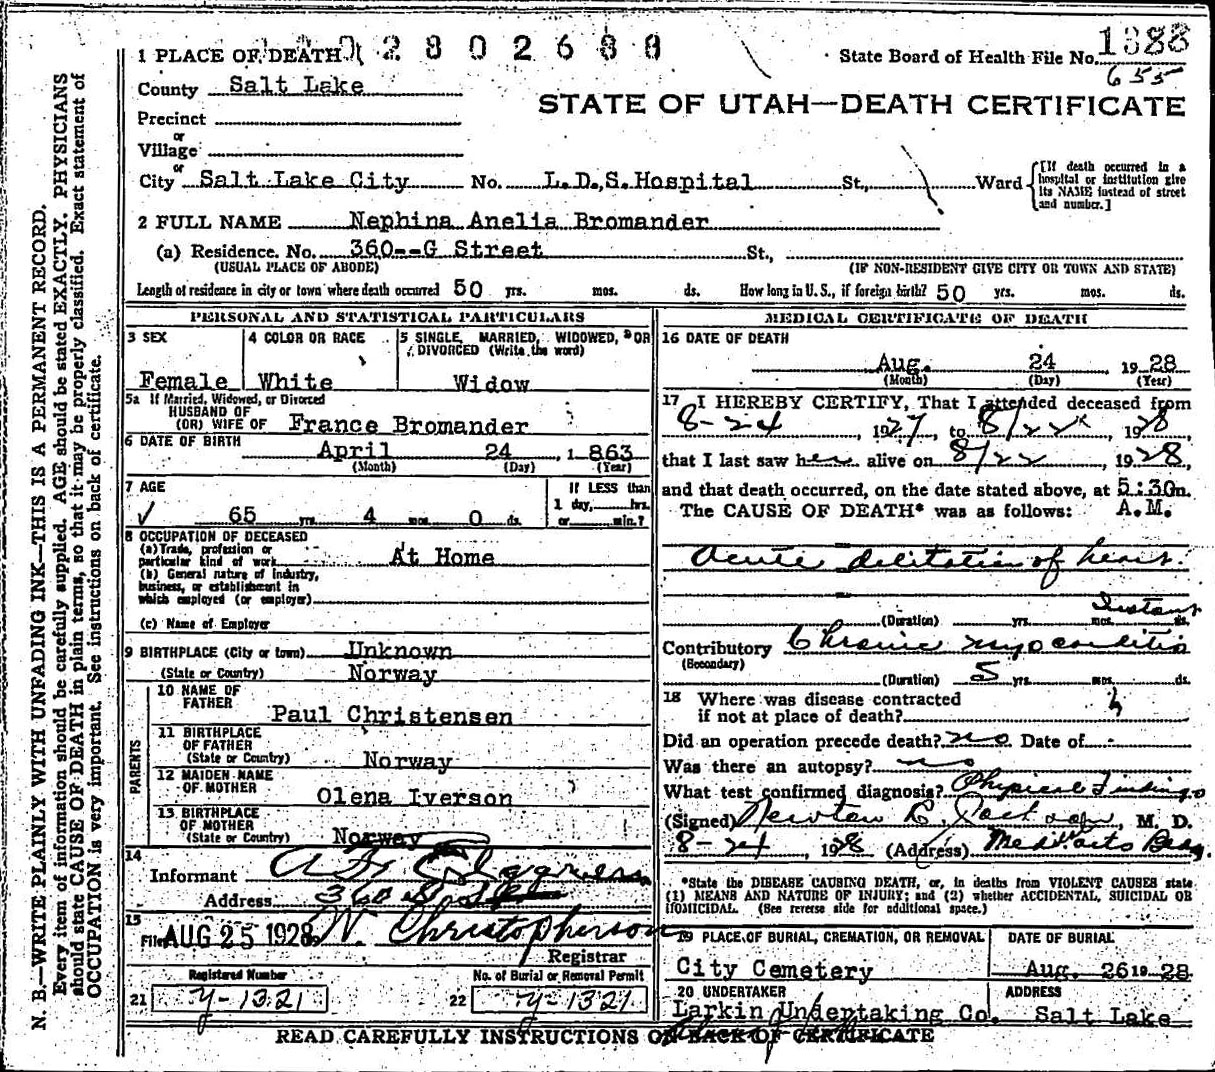 1 PLACE OF DEATH
2802688
State Board of Health File No. 1388
655
County Salt Lake
STATE OF UTAH—DEATH CERTIFICATE
Precinct
or
Village
or
City Salt Lake City No. L.D.S. Hospital St., Ward
[If death occurred in a hospital or institution give its NAME instead of street and number.]
2 FULL NAME Nephina Anelia Bromander
(a) Residence. No. 360--G Street St.,
(USUAL PLACE OF ABODE) (IF NON-RESIDENT GIVE CITY OR TOWN AND STATE)
Length of residence in city or town where death occurred 50 yrs. mos. ds. How long in U. S., if foreign birth? 50 yrs. mos. ds.
PERSONAL AND STATISTICAL PARTICULARS
3 SEX
Female
4 COLOR OR RACE
White
5 SINGLE, MARRIED, WIDOWED, OR
DIVORCED (Write the word)
Widow
5a If Married, Widowed, or Divorced
HUSBAND OF
(OR) WIFE OF France Bromander
6 DATE OF BIRTH April 24, 1863
(Month) (Day) (Year)
7 AGE
65 yrs. 4 mos. 0 ds.
If LESS than
1 day, hrs.
or min.?
8 OCCUPATION OF DECEASED
(a) Trade, profession or
particular kind of work At Home
(b) General nature of industry,
business, or establishment in
which employed (or employer)
(c) Name of Employer
9 BIRTHPLACE (City or town) Unknown
(State or Country) Norway
PARENTS
10 NAME OF
FATHER
Paul Christensen
11 BIRTHPLACE
OF FATHER
(State or Country) Norway
12 MAIDEN NAME
OF MOTHER
Olena Iverson
13 BIRTHPLACE
OF MOTHER
(State or Country) Norway
14
Informant
Address 360
15
Filed AUG 25 1928 W. Christopherson
Registrar
Registered Number
21 y-1321
No. of Burial or Removal Permit
22 y-1321
MEDICAL CERTIFICATE OF DEATH
16 DATE OF DEATH
Aug. 24 1928
(Month) (Day) (Year)
17 I HEREBY CERTIFY, That I attended deceased from
8-24, 1927, to 8/22, 1928,
that I last saw her alive on 8/22, 1928,
and that death occurred, on the date stated above, at 5:30 m.
The CAUSE OF DEATH* was as follows: A.M.
Acute dilitation of heart
Instant
(Duration) yrs. mos. ds.
Contributory Chronic myocarditis
(Secondary)
(Duration) 5 yrs. mos. ds.
18 Where was disease contracted
if not at place of death?
Did an operation precede death? no Date of -
Was there an autopsy? no
What test confirmed diagnosis? Physical Findings
(Signed) Newton E. M. D.
8-24, 1928 (Address) Med. Arts Bldg.
*State the DISEASE CAUSING DEATH, or, in deaths from VIOLENT CAUSES state
(1) MEANS AND NATURE OF INJURY; and (2) whether ACCIDENTAL, SUICIDAL OR
HOMICIDAL. (See reverse side for additional space.)
19 PLACE OF BURIAL, CREMATION, OR REMOVAL
City Cemetery
DATE OF BURIAL
Aug. 26 1928
20 UNDERTAKER
Larkin Undertaking Co.
ADDRESS
Salt Lake
READ CAREFULLY INSTRUCTIONS ON BACK OF CERTIFICATE
N. B.—WRITE PLAINLY WITH UNFADING INK—THIS IS A PERMANENT RECORD.
Every item of information should be carefully supplied. AGE should be stated EXACTLY. PHYSICIANS
should state CAUSE OF DEATH in plain terms, so that it may be properly classified. Exact statement of
OCCUPATION is very important. See instructions on back of certificate.